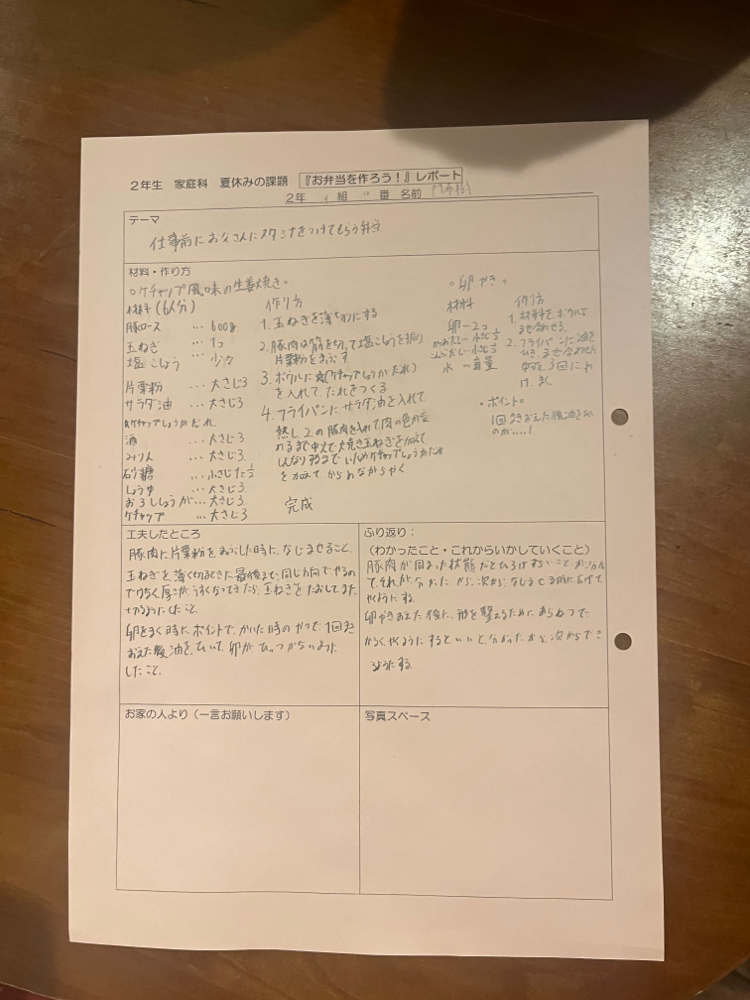 2年生 家庭科 夏休みの課題 『お弁当を作ろう！』レポート
2年 組 番 名前
テーマ
仕事前にお父さんにスタミナをつけてもらう弁当
材料・作り方
○ケチャップ風味の生姜焼き○
材料(6人分)
豚ロース … 600g
玉ねぎ … 1コ
塩こしょう … 少々
片栗粉 … 大さじ3
サラダ油 … 大さじ3
ケチャップしょうがだれ
酒 … 大さじ3
みりん … 大さじ3
砂糖 … 小さじ
しょうゆ … 大さじ3
おろししょうが… 大さじ3
ケチャップ … 大さじ3
作り方
1. 玉ねぎを薄切りにする
2. 豚肉は筋を切って塩こしょうを振り
片栗粉をまぶす
3. ボウルに(ケチャップしょうがだれ)
を入れて、たれをつくる
4. フライパンにサラダ油を入れて
熱し2の豚肉を入れて肉の色が変
わるまで中火で焼き玉ねぎを加えて
しんなりするまでいためケチャップしょうがだれ
を加えてからめながらやく
完成
○卵やき○
材料
卵 - 2コ
水 -
作り方
1. 材料をボウルで
まぜ合わせる
2. フライパンに油を
ひき まぜ合わせた
3回にわ
け、まく
・ポイント○
1回まきおえた後油を
工夫したところ
豚肉に片栗粉をまぶした時に、なじませること。
玉ねぎを薄く切るときに最後まで同じ方向でやるの
ではなく、厚さがうすくなってきたら、玉ねぎをたおしてまた
切るようにしたこと。
卵をまく時にポイントで、かいた時のやつで1回まき
おえた後油を、ひいて、卵がひっつかないように
したこと。
ふり返り：
（わかったこと・これからいかしていくこと）
豚肉が固まった状態だと
て、それが分かったから、次から
やくようにする
卵やきおえた後に、形を整えるために、あらねつで
かるくやくようにするといいと分かったから次からでき
るようにする
お家の人より（一言お願いします）
写真スペース